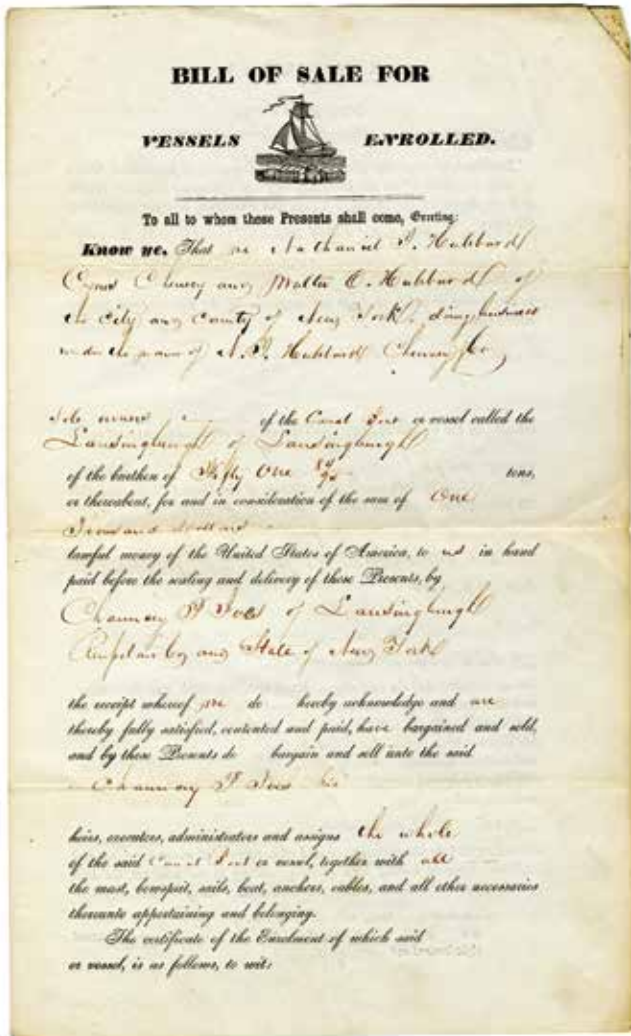 BILL OF SALE FOR
VESSELS ENROLLED.
To all to whom these Presents shall come, Greeting:
Know ye, That we Nathaniel T. Hubbard
Cyrus Chenery and Walter C. Hubbard of
the City and County of New York, doing business
under the name of N. T. Hubbard Chenery & Co
Sole owners of the Canal Boat or vessel called the
Lansingburgh of Lansingburgh
of the burthen of Fifty One tons,
or thereabout, for and in consideration of the sum of One
Thousand dollars
lawful money of the United States of America, to us in hand
paid before the sealing and delivery of these Presents, by
Chauncey P Ives of Lansingburgh
and State of New York
the receipt whereof we do hereby acknowledge and are
thereby fully satisfied, contented and paid, have bargained and sold,
and by these Presents do bargain and sell unto the said
Chauncey P Ives his
heirs, executors, administrators and assigns the whole
of the said Canal Boat or vessel, together with all
the mast, bowsprit, sails, boat, anchors, cables, and all other necessaries
thereunto appertaining and belonging.
The certificate of the Enrolment of which said
or vessel, is as follows, to wit: